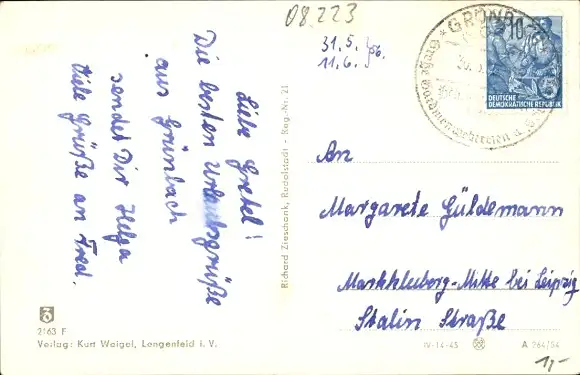 08.223
31.5.56.
11.6.
Liebe Gretel!
Die besten Urlaubsgrüße
aus Grünbach
sendet Dir Helga
Viele Grüße an Fred.
Richard Zieschank, Rudolstadt - Reg.-Nr. 21
GRÜNBACH
Große Gardinenwebereien u.
10
5
DEUTSCHE
DEMOKRATISCHE REPUBLIK
An
Margarete Güldemann
Markkleeberg-Mitte bei Leipzig
Stalin Straße
2163 F
Verlag: Kurt Weigel, Lengenfeld i. V.
IV-14-45
A 264/54
1,-